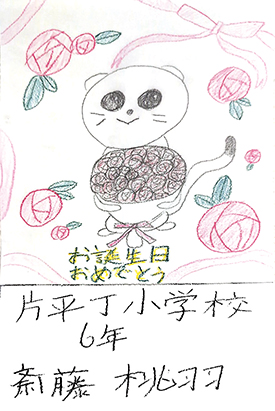 お誕生日
おめでとう
片平丁小学校
6年
斎藤 桃羽